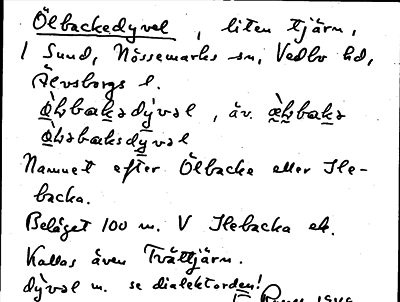 Ölbackedyvel, liten tjärn,
1 Sund, Nössemarks sn, Vedbo hd,
Älvsborgs l.
dỳvəl, äv.
Namnet efter Ölbacka eller Ile-
backa.
Beläget 100 m. V Ilebacka ek.
Kallas även Tvättjärn.
dỳvəl m. se dialektorden!